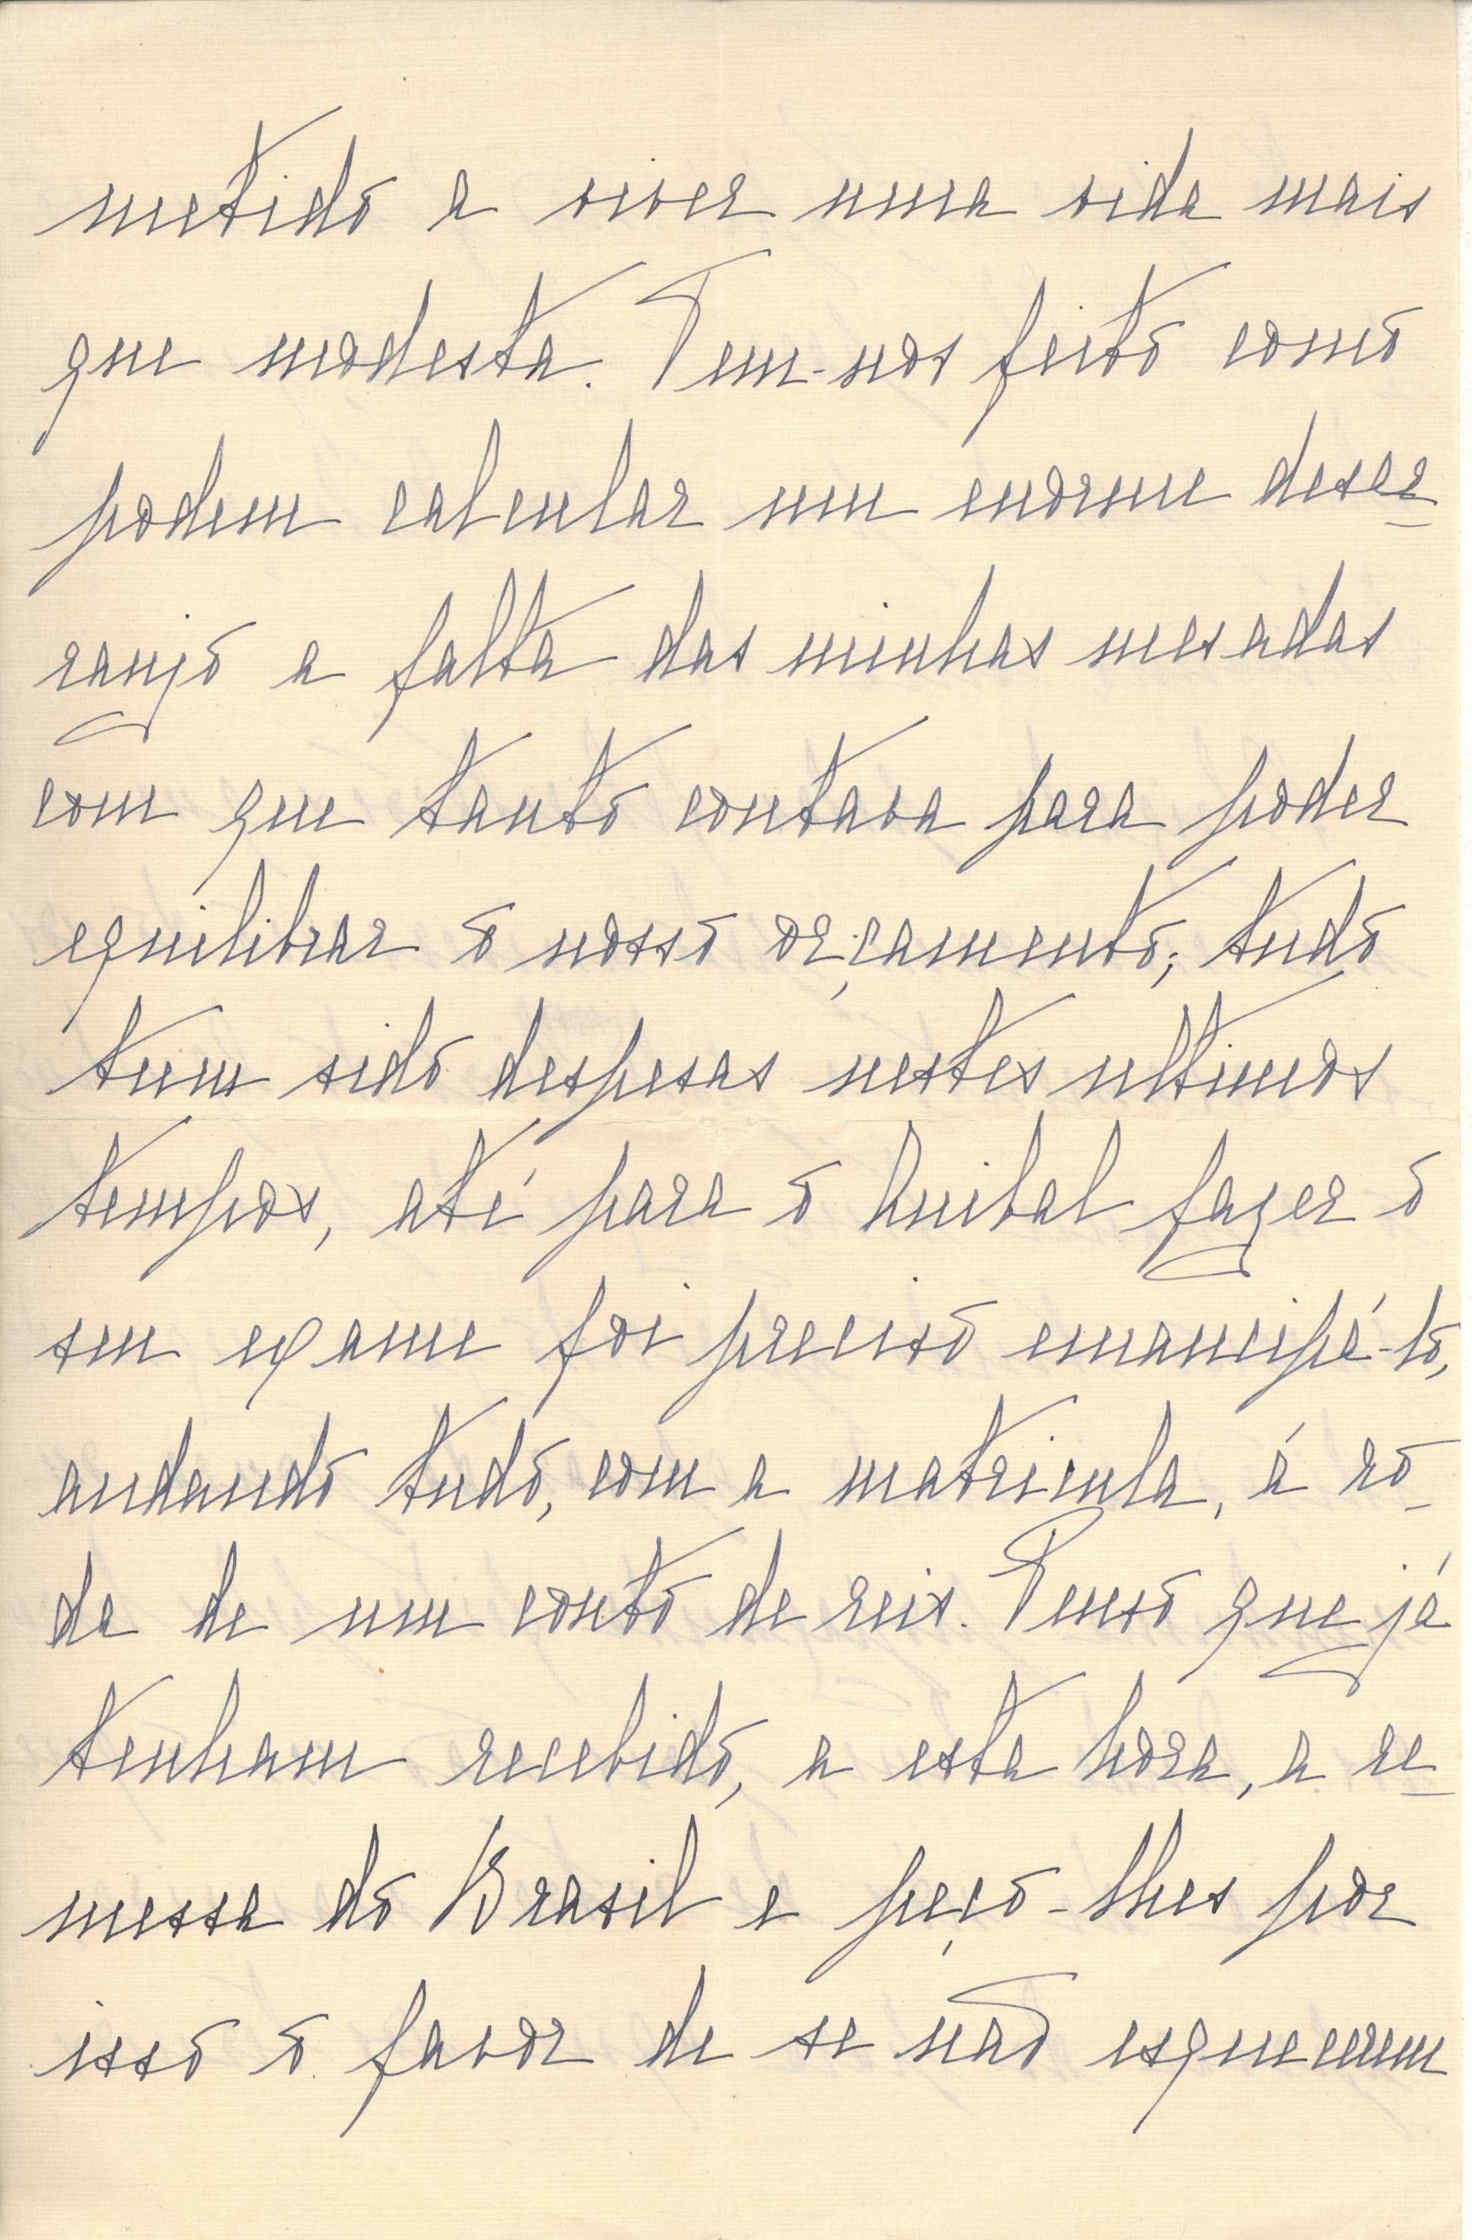 metido a viver uma vida mais
que modesta. Tem-nos feito como
podem calcular um enorme desar-
ranjo a falta das minhas mesadas
com que tanto contava para poder
equilibrar o nosso orçamento; tudo
teem sido despesas nestes ultimos
tempos, até para o Anibal fazer o
seu exame foi preciso emancipá-lo,
andando tudo, com a matricula, á ro-
da de um conto de reis. Penso que já
tenham recebido, a esta hora, a re-
messa do Brasil e peço-lhes por
isso o favor de se não esquecerem